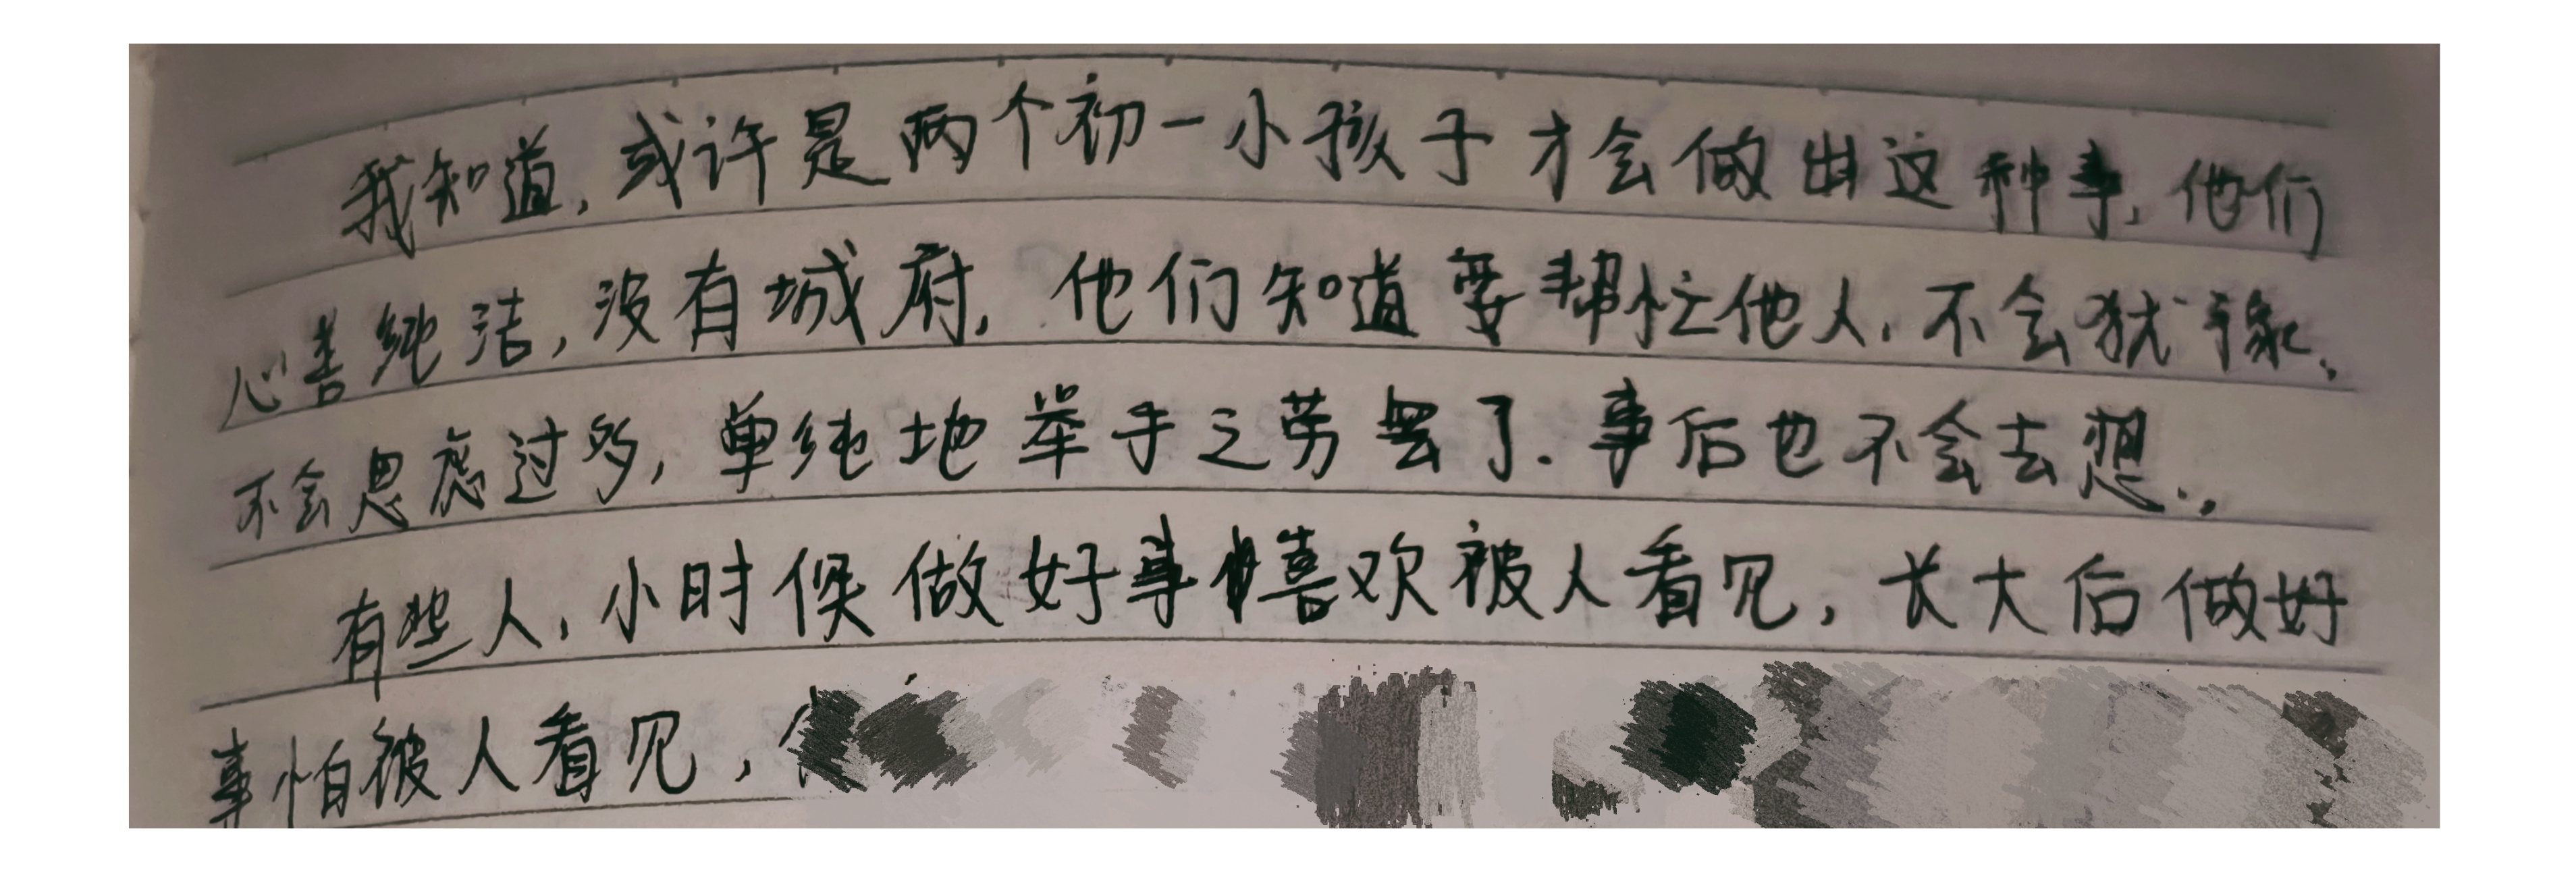 我知道,或许是两个初一小孩子才会做出这种事,他们
心善纯洁,没有城府,他们知道要帮忙他人,不会犹豫,
不会思虑过多,单纯地举手之劳罢了.事后也不会去想.,
有些人,小时候做好事喜欢被人看见,长大后做好
事怕被人看见,